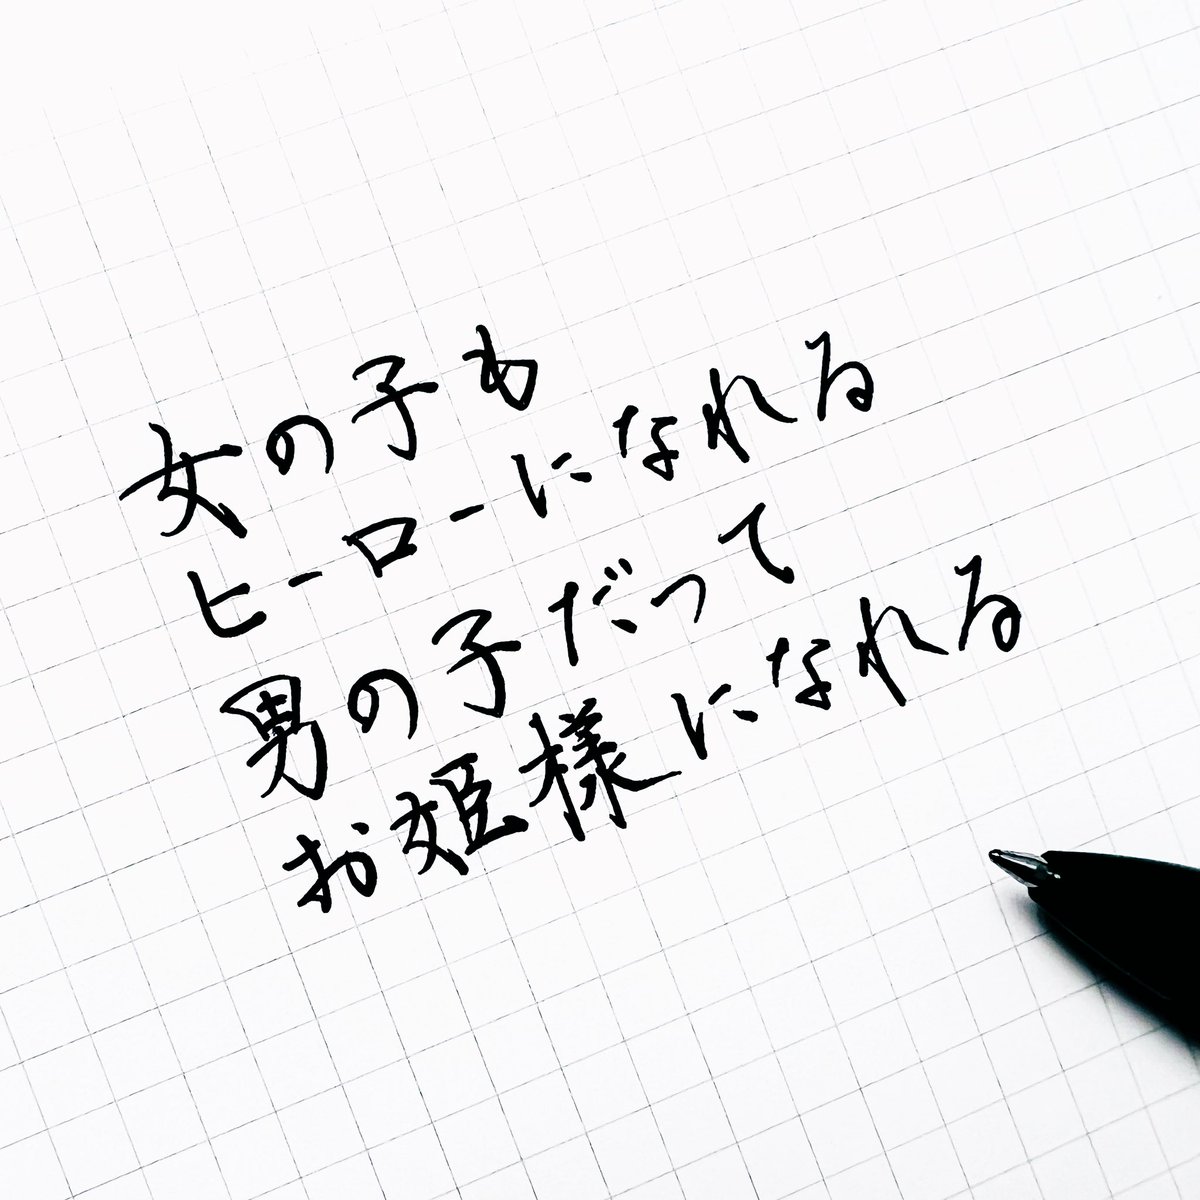 女の子も
ヒーローになれる
男の子だって
お姫様になれる